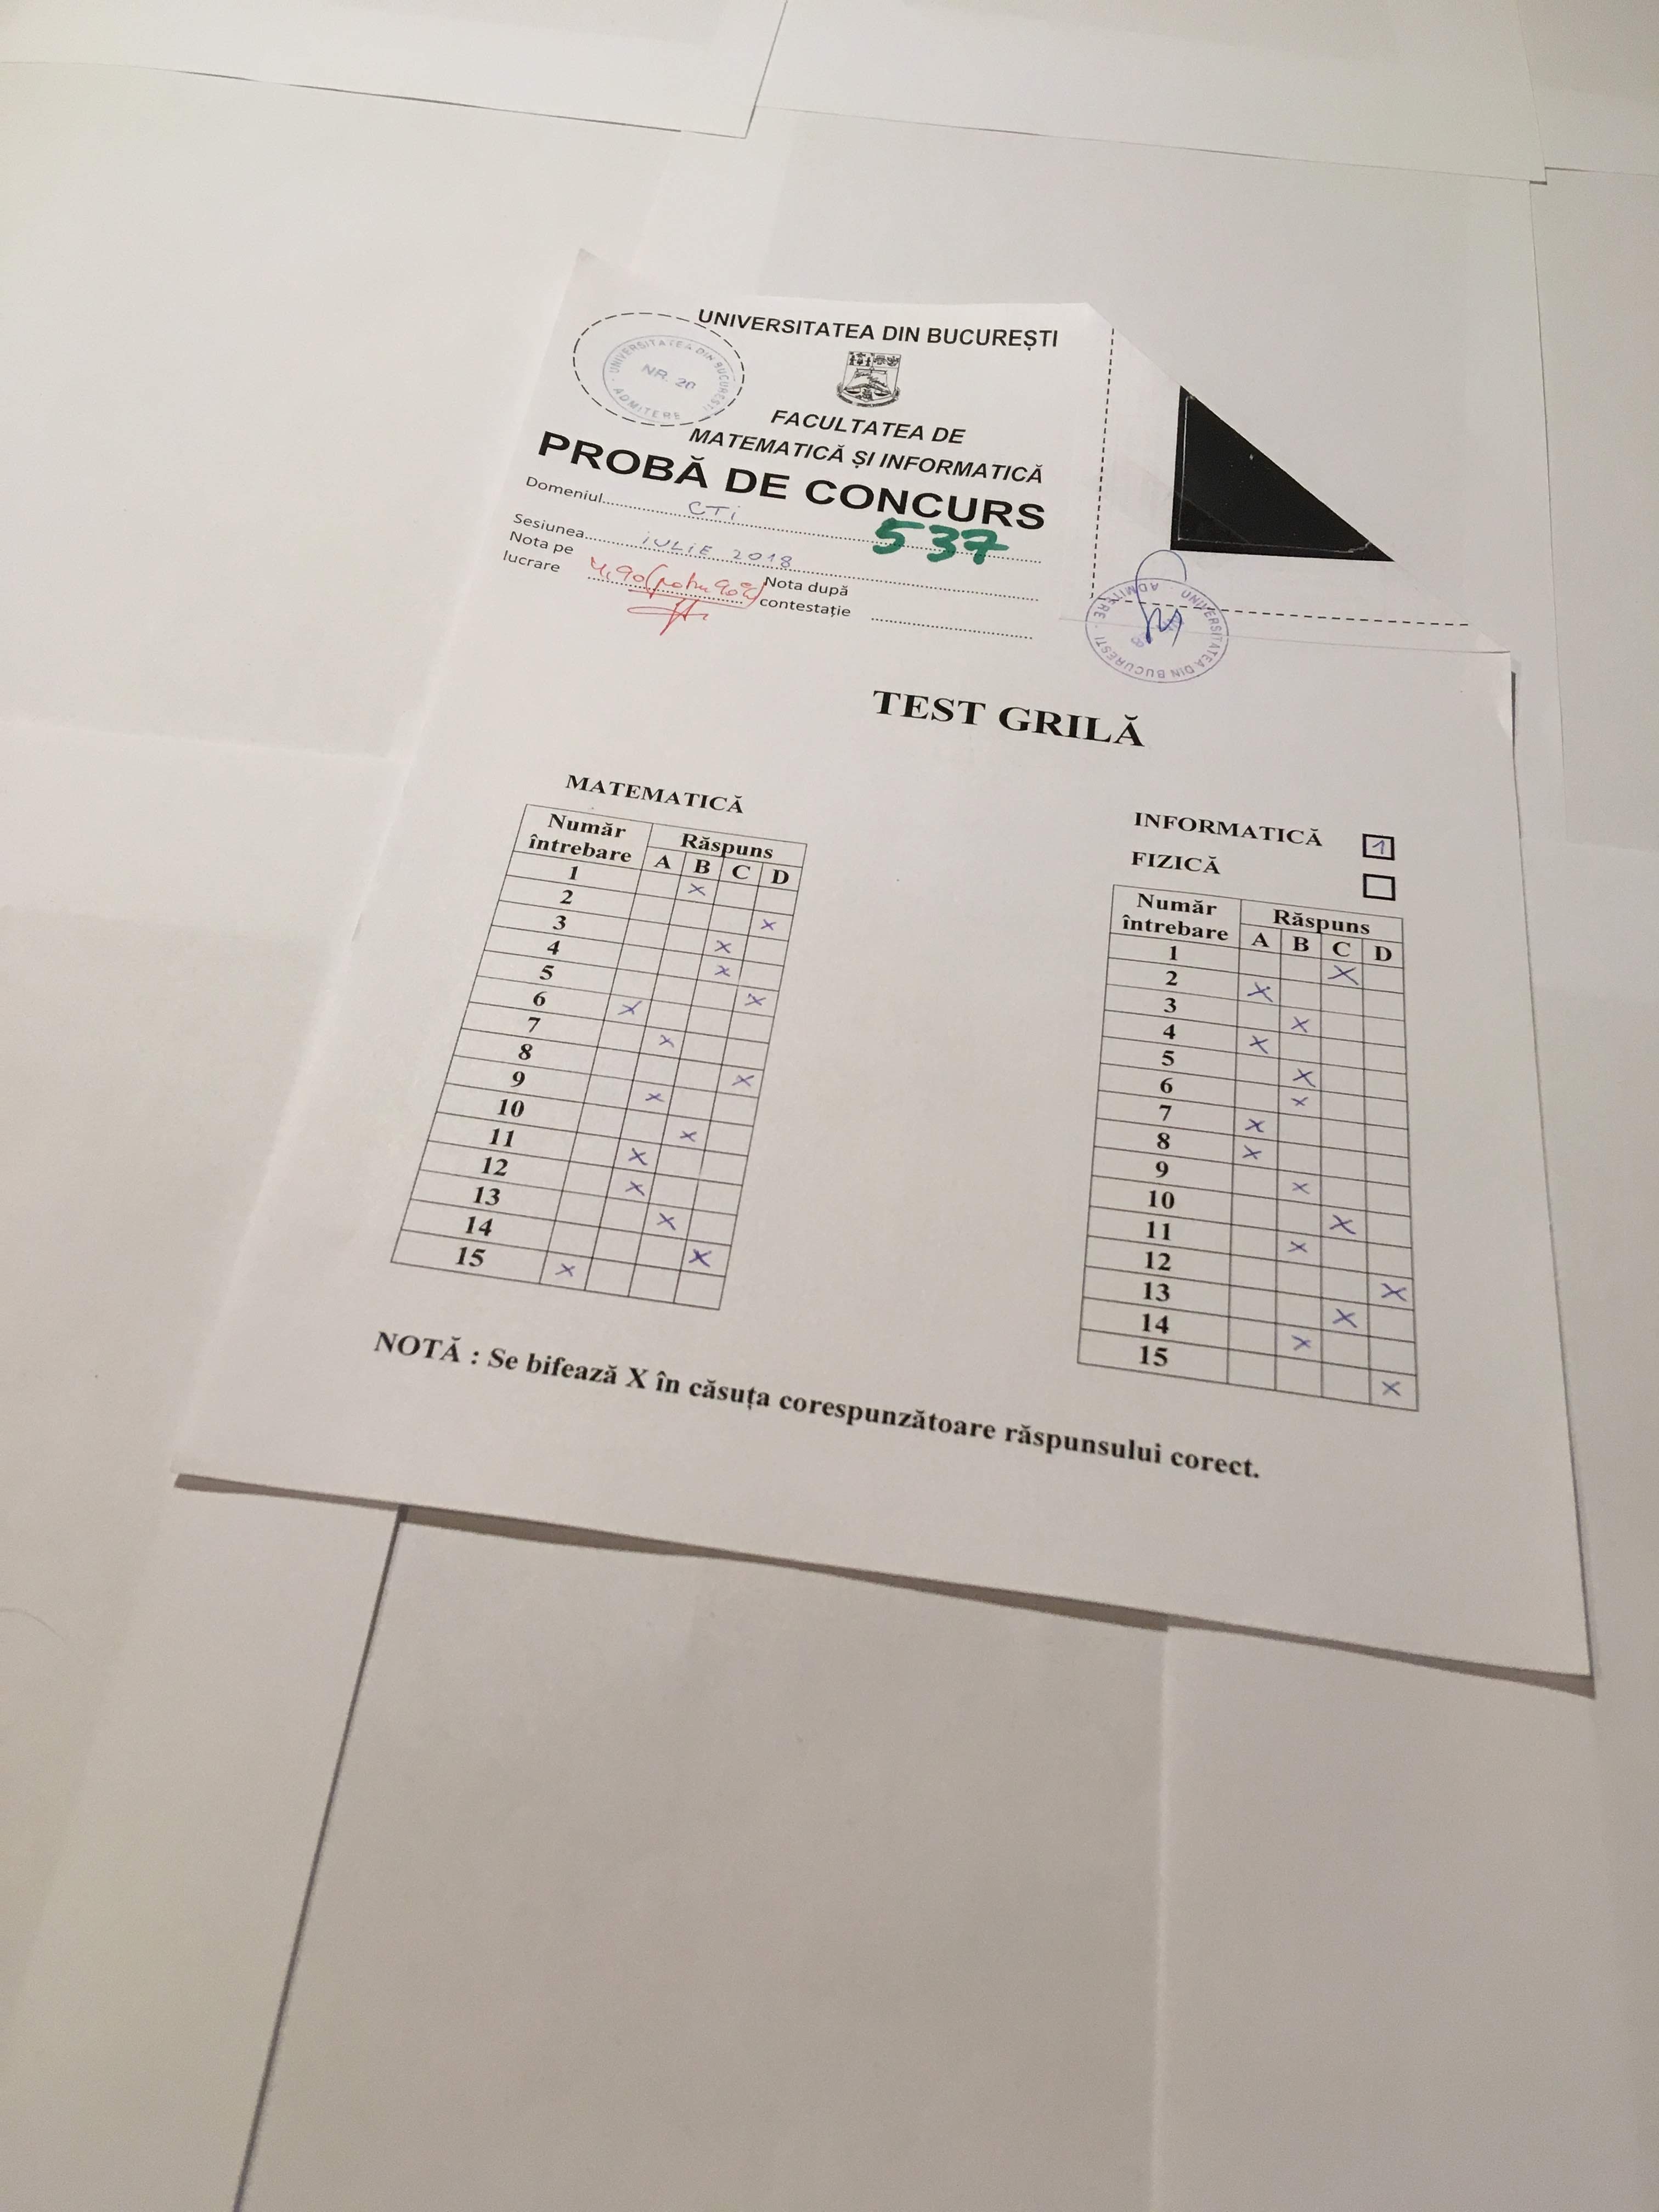 UNIVERSITATEA DIN BUCUREȘTI
UNIVERSITATEA DIN BUCURESTI
NR. 20
ADMITERE
FACULTATEA DE
MATEMATICĂ ȘI INFORMATICĂ
PROBĂ DE CONCURS
Domeniul CTi
537
Sesiunea iULiE 2018
Nota pe
lucrare 4,90 (pentru 90%) Nota după
contestație
UNIVERSITATEA DIN BUCURESTI
ADMITERE
TEST GRILĂ
MATEMATICĂ
Număr
întrebare Răspuns
A B C D
1 X
2 X
3 X
4 X
5 X
6 X
7 X
8 X
9 X
10 X
11 X
12 X
13 X
14 X
15 X
INFORMATICĂ 1
FIZICĂ
Număr
întrebare Răspuns
A B C D
1 X
2 X
3 X
4 X
5 X
6 X
7 X
8 X
9 X
10 X
11 X
12 X
13 X
14 X
15 X
NOTĂ : Se bifează X în căsuța corespunzătoare răspunsului corect.